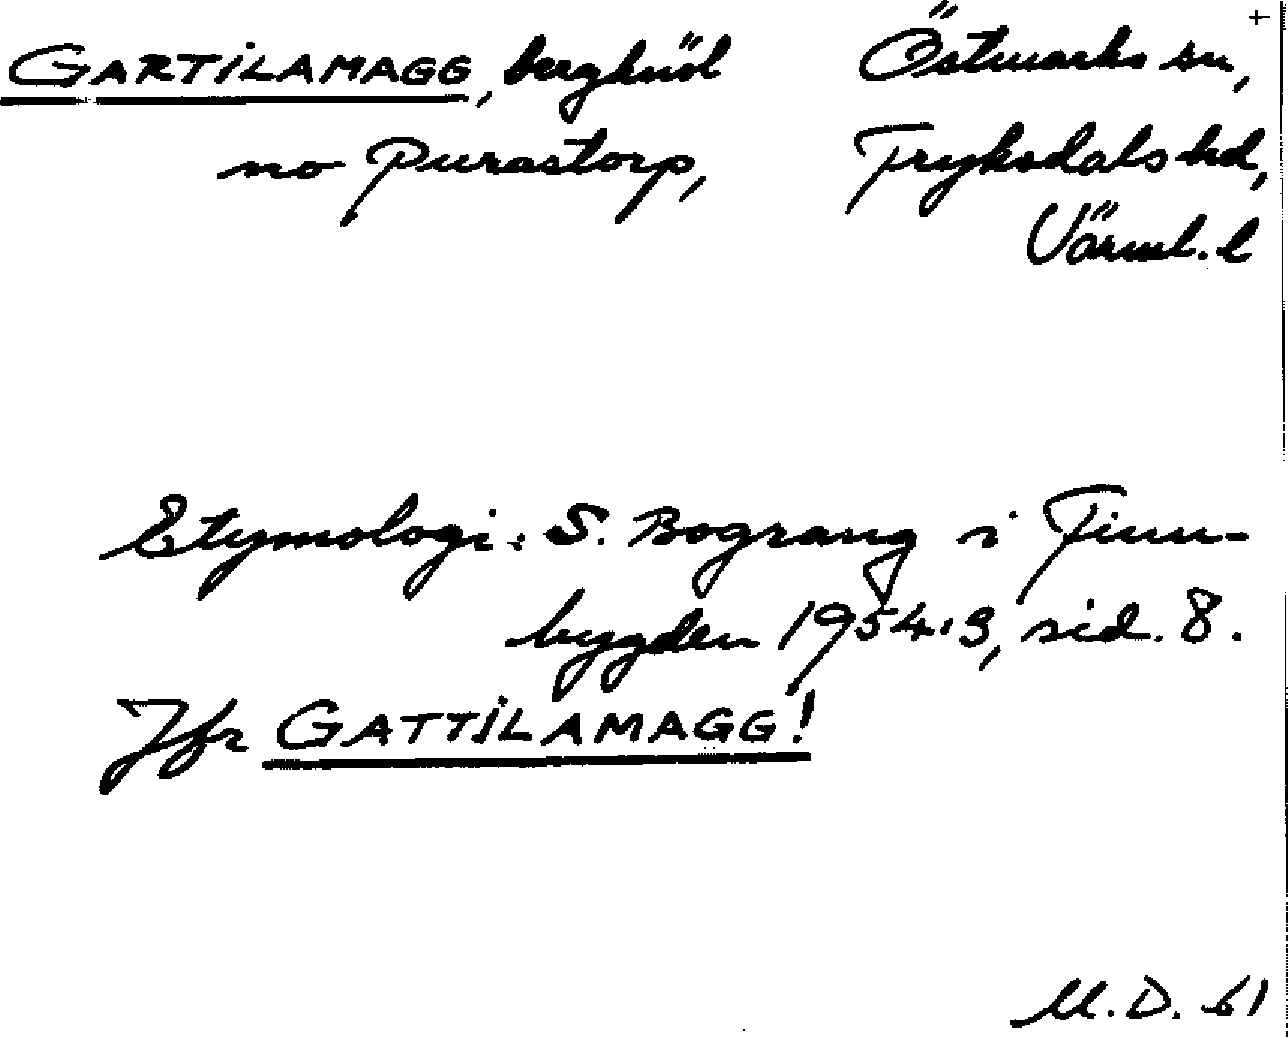 GARTILAMAGG, bergknöl Östmarks sn,
no Purastorp, Fryksdals hd,
Värml. l
Etymologi: S. Bograng i Finn-
bygden 1954:3, sid. 8.
Jfr GATTILAMAGG!
M.D. 61